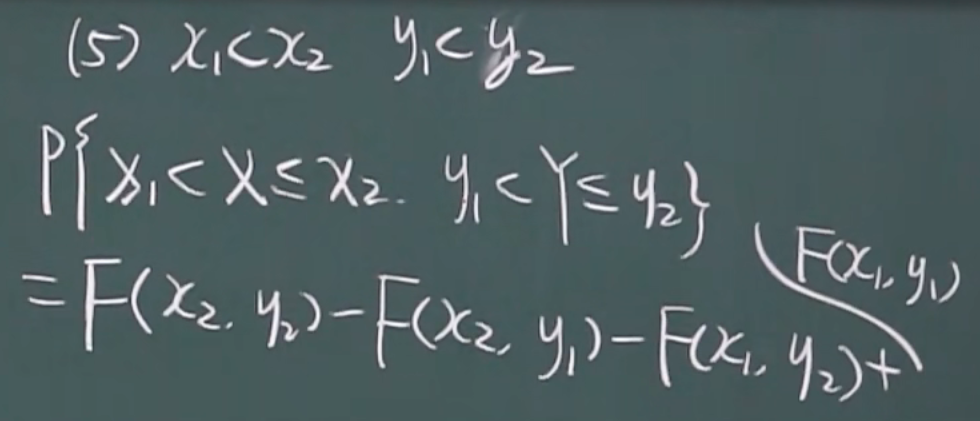 (5) x₁<x₂ y₁<y₂
P{x₁<X≤x₂. y₁<Y≤y₂}
=F(x₂.y₂)-F(x₂,y₁)-F(x₁,y₂)+
F(x₁,y₁)